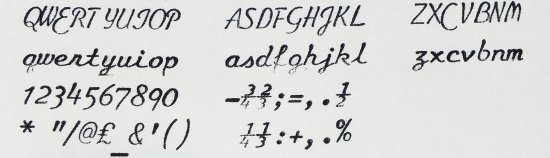 QWERTYUIOP ASDFGHJKL ZXCVBNM
qwertyuiop asdfghjkl zxcvbnm
1234567890 -¾⅔;=,.½
* "/@£_&'() ¼⅓:+,.%